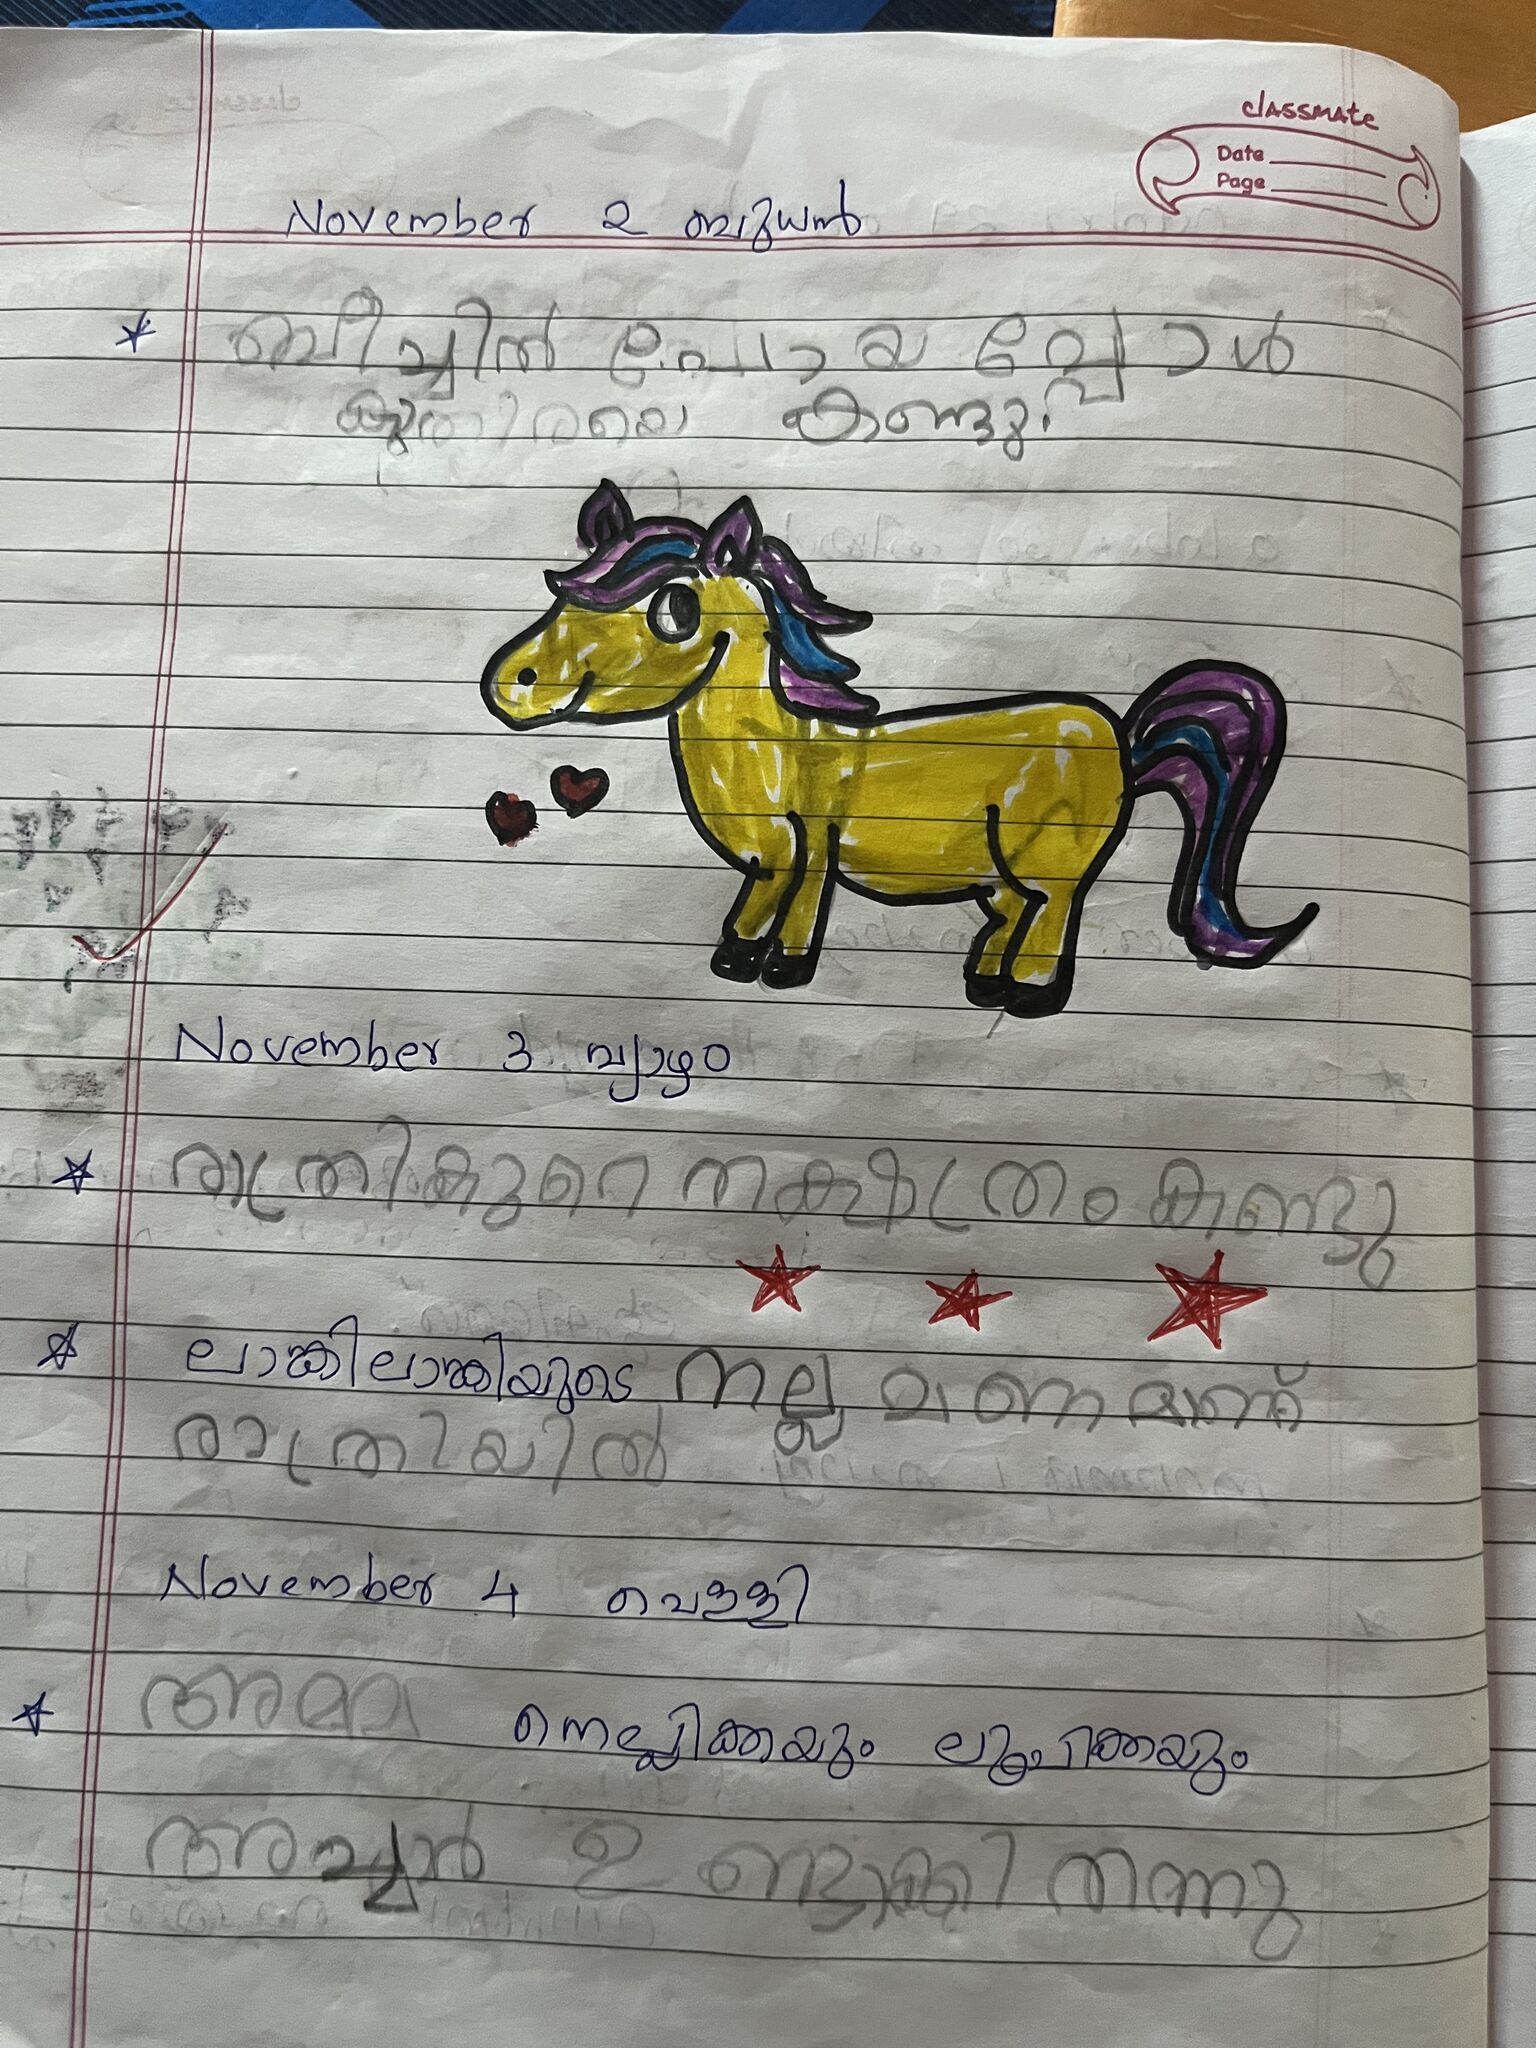 classmate
Date
Page
November 2 ബുധൻ
ബീച്ചിൽ പോയപ്പോൾ
കുതിരയെ കണ്ടു.
November 3 വ്യാഴം
രാത്രി കുറെ നക്ഷത്രം കണ്ടു
ലാങ്കിലാങ്കിയുടെ നല്ല മണമാണ്
രാത്രിയിൽ
November 4 വെള്ളി
അമ്മ നെല്ലിക്കയും ലൂപിക്കയും
അച്ചാർ ഉണ്ടാക്കി തന്നു